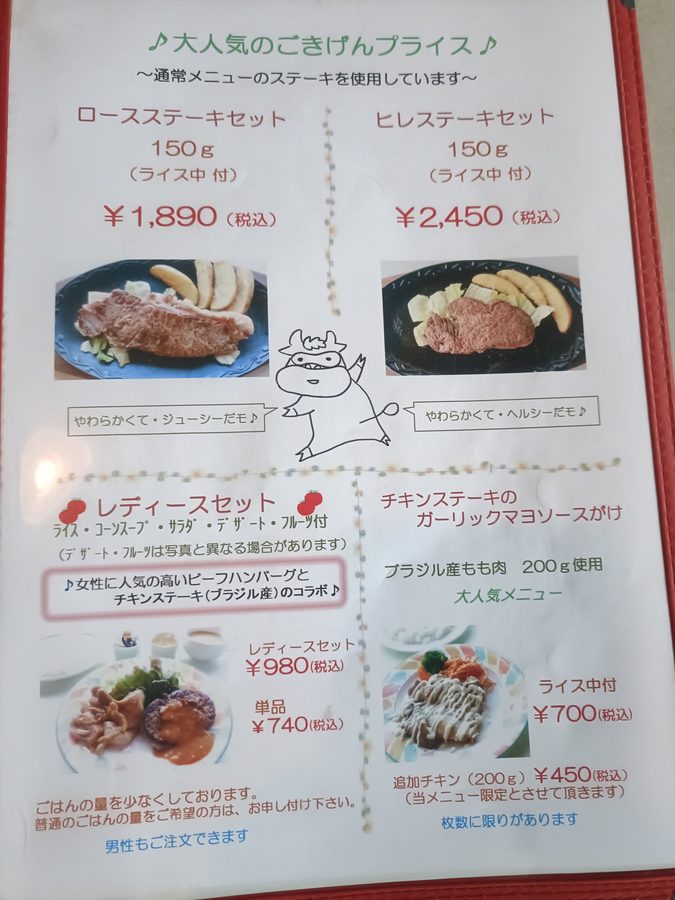 ♪大人気のごきげんプライス♪
～通常メニューのステーキを使用しています～
ロースステーキセット
150g
（ライス中 付）
￥1,890（税込）
ヒレステーキセット
150g
（ライス中 付）
￥2,450（税込）
やわらかくて・ジューシーだモ♪
やわらかくて・ヘルシーだモ♪
レディースセット
ﾗｲｽ・ｺｰﾝｽｰﾌﾟ・ｻﾗﾀﾞ・ﾃﾞｻﾞｰﾄ・ﾌﾙｰﾂ付
（ﾃﾞｻﾞｰﾄ・ﾌﾙｰﾂは写真と異なる場合があります）
♪女性に人気の高いビーフハンバーグと
チキンステーキ（ブラジル産）のコラボ♪
レディースセット
￥980（税込）
単品
￥740（税込）
ごはんの量を少なくしております。
普通のごはんの量をご希望の方は、お申し付け下さい。
男性もご注文できます
チキンステーキの
ガーリックマヨソースがけ
ブラジル産もも肉　200g使用
大人気メニュー
ライス中付
￥700（税込）
追加チキン（200g）￥450（税込）
（当メニュー限定とさせて頂きます）
枚数に限りがあります